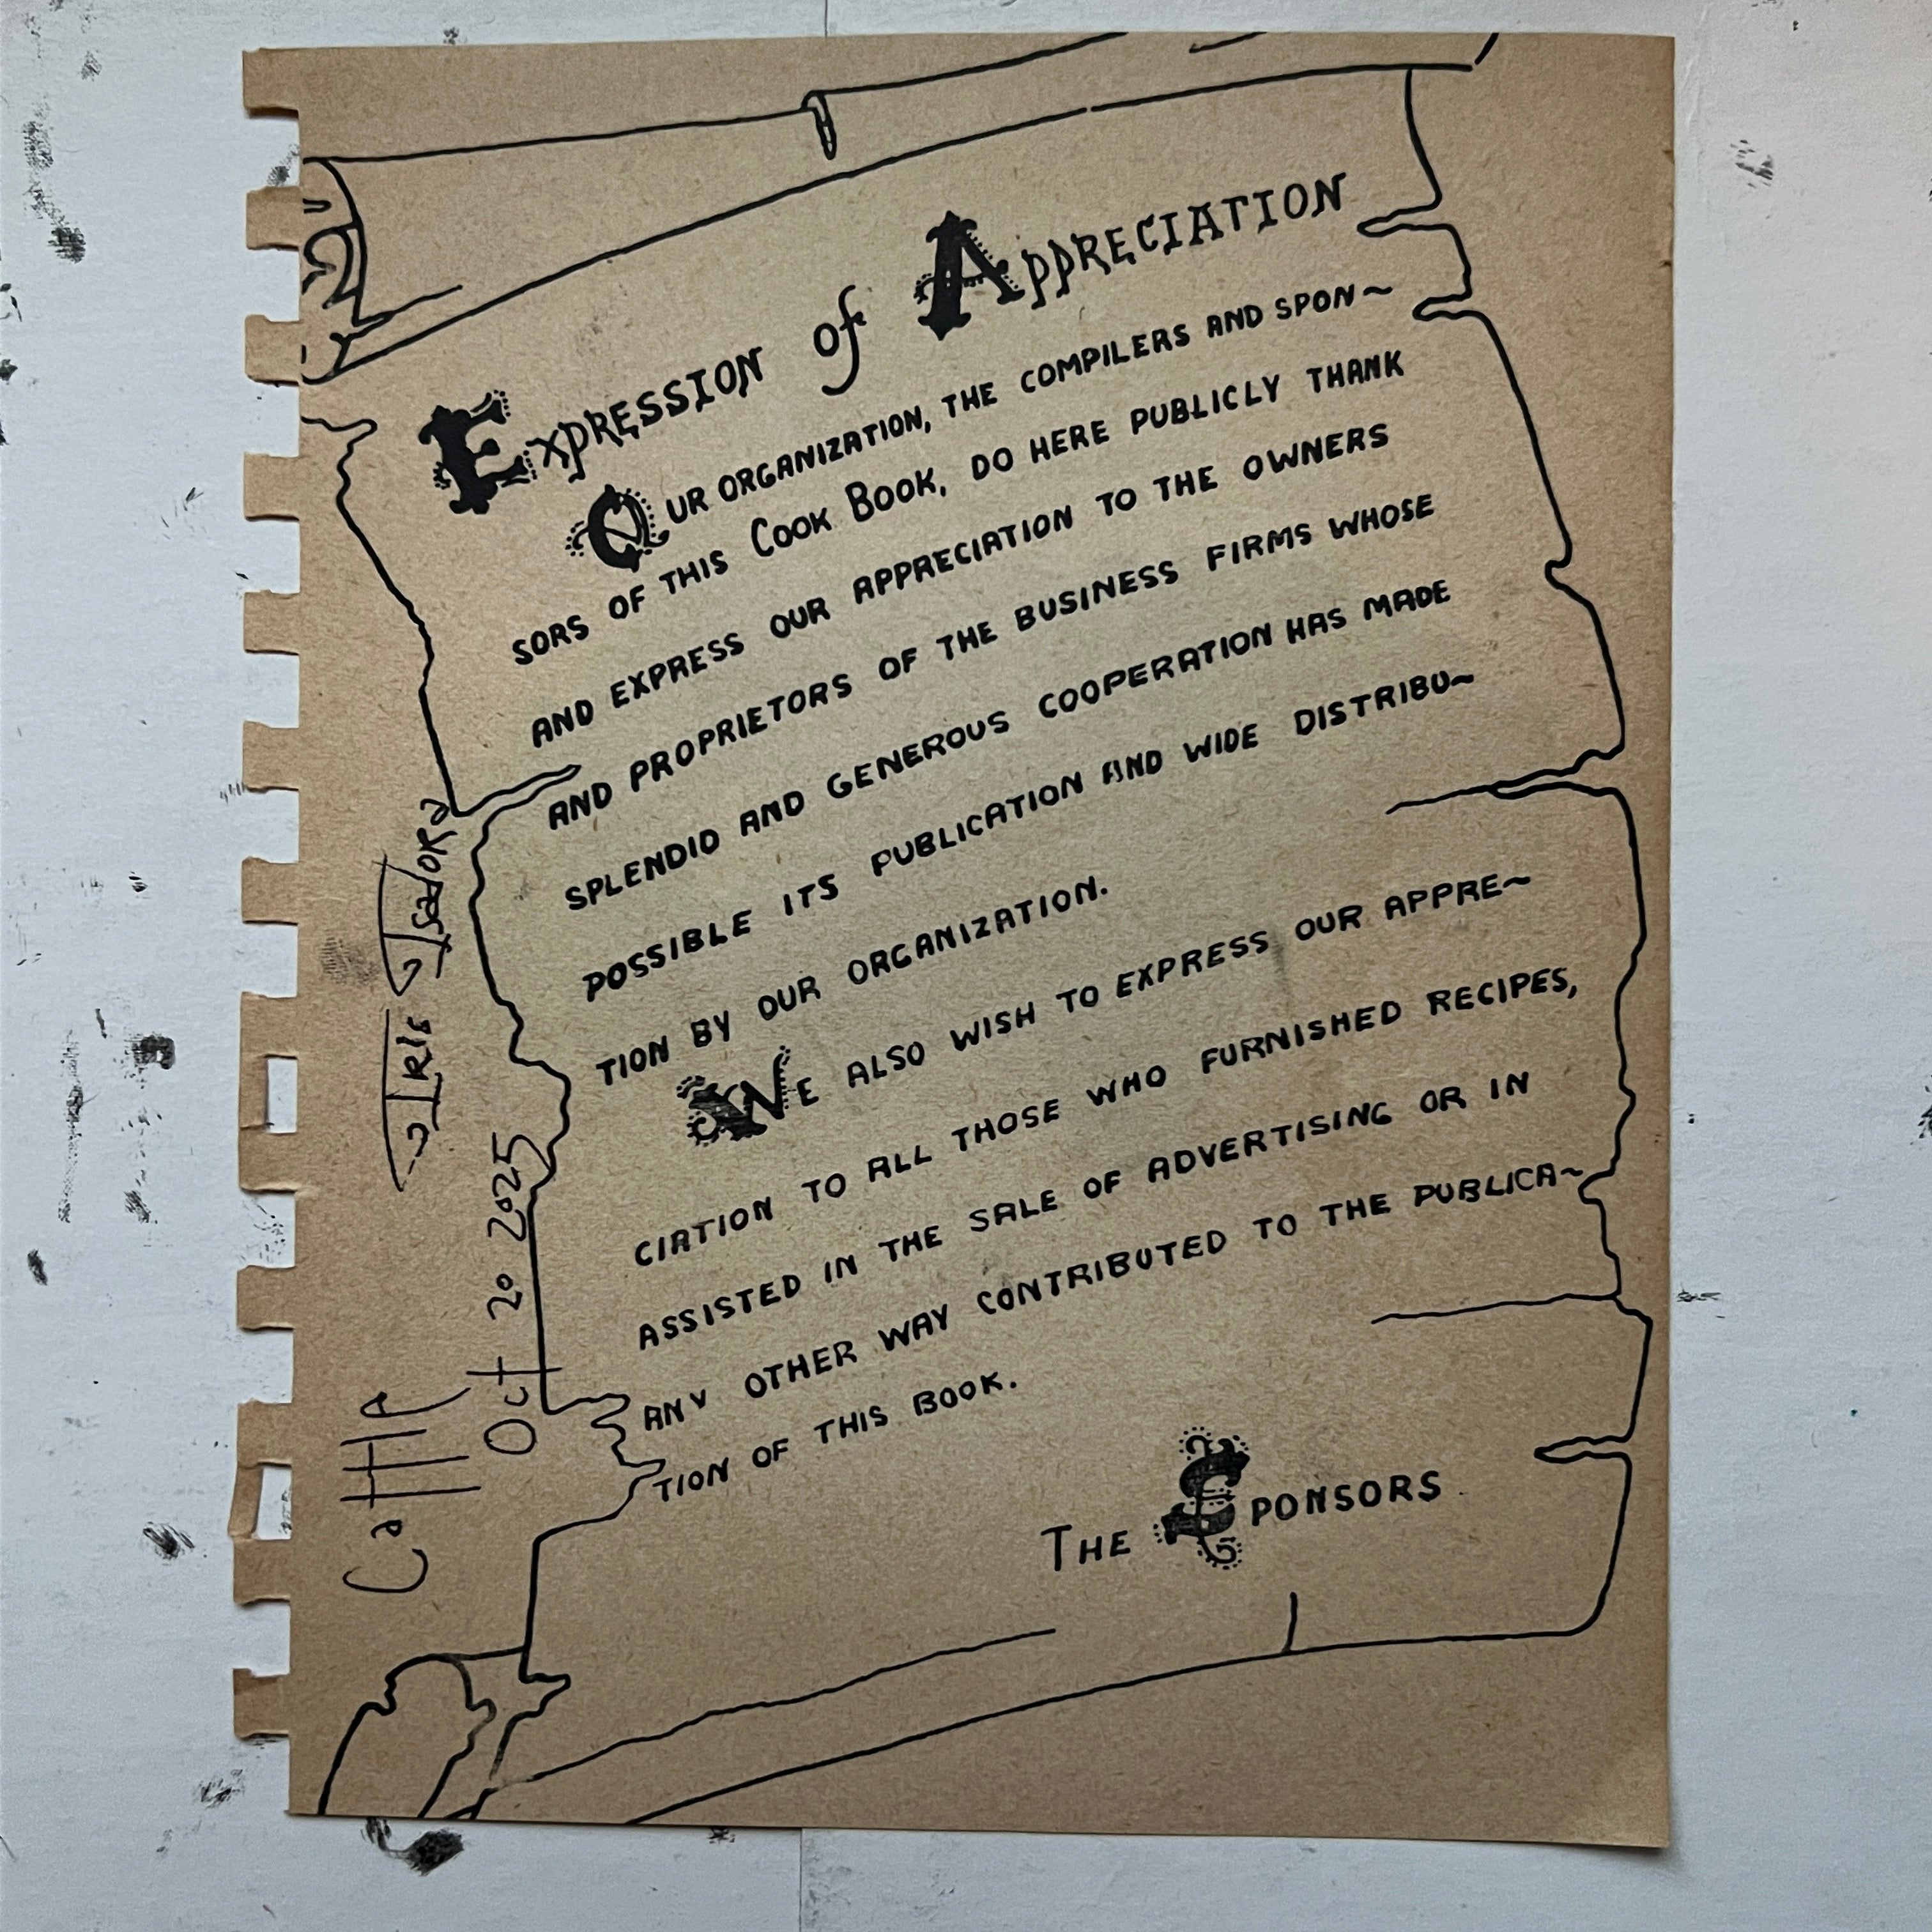 Expression of Appreciation
OUR ORGANIZATION, THE COMPILERS AND SPON~
SORS OF THIS COOK BOOK, DO HERE PUBLICLY THANK
AND EXPRESS OUR APPRECIATION TO THE OWNERS
AND PROPRIETORS OF THE BUSINESS FIRMS WHOSE
SPLENDID AND GENEROUS COOPERATION HAS MADE
POSSIBLE ITS PUBLICATION AND WIDE DISTRIBU~
TION BY OUR ORGANIZATION.
WE ALSO WISH TO EXPRESS OUR APPRE~
CIATION TO ALL THOSE WHO FURNISHED RECIPES,
ASSISTED IN THE SALE OF ADVERTISING OR IN
ANY OTHER WAY CONTRIBUTED TO THE PUBLICA~
TION OF THIS BOOK.
THE SPONSORS
Iris Isadora
Oct 20 2025